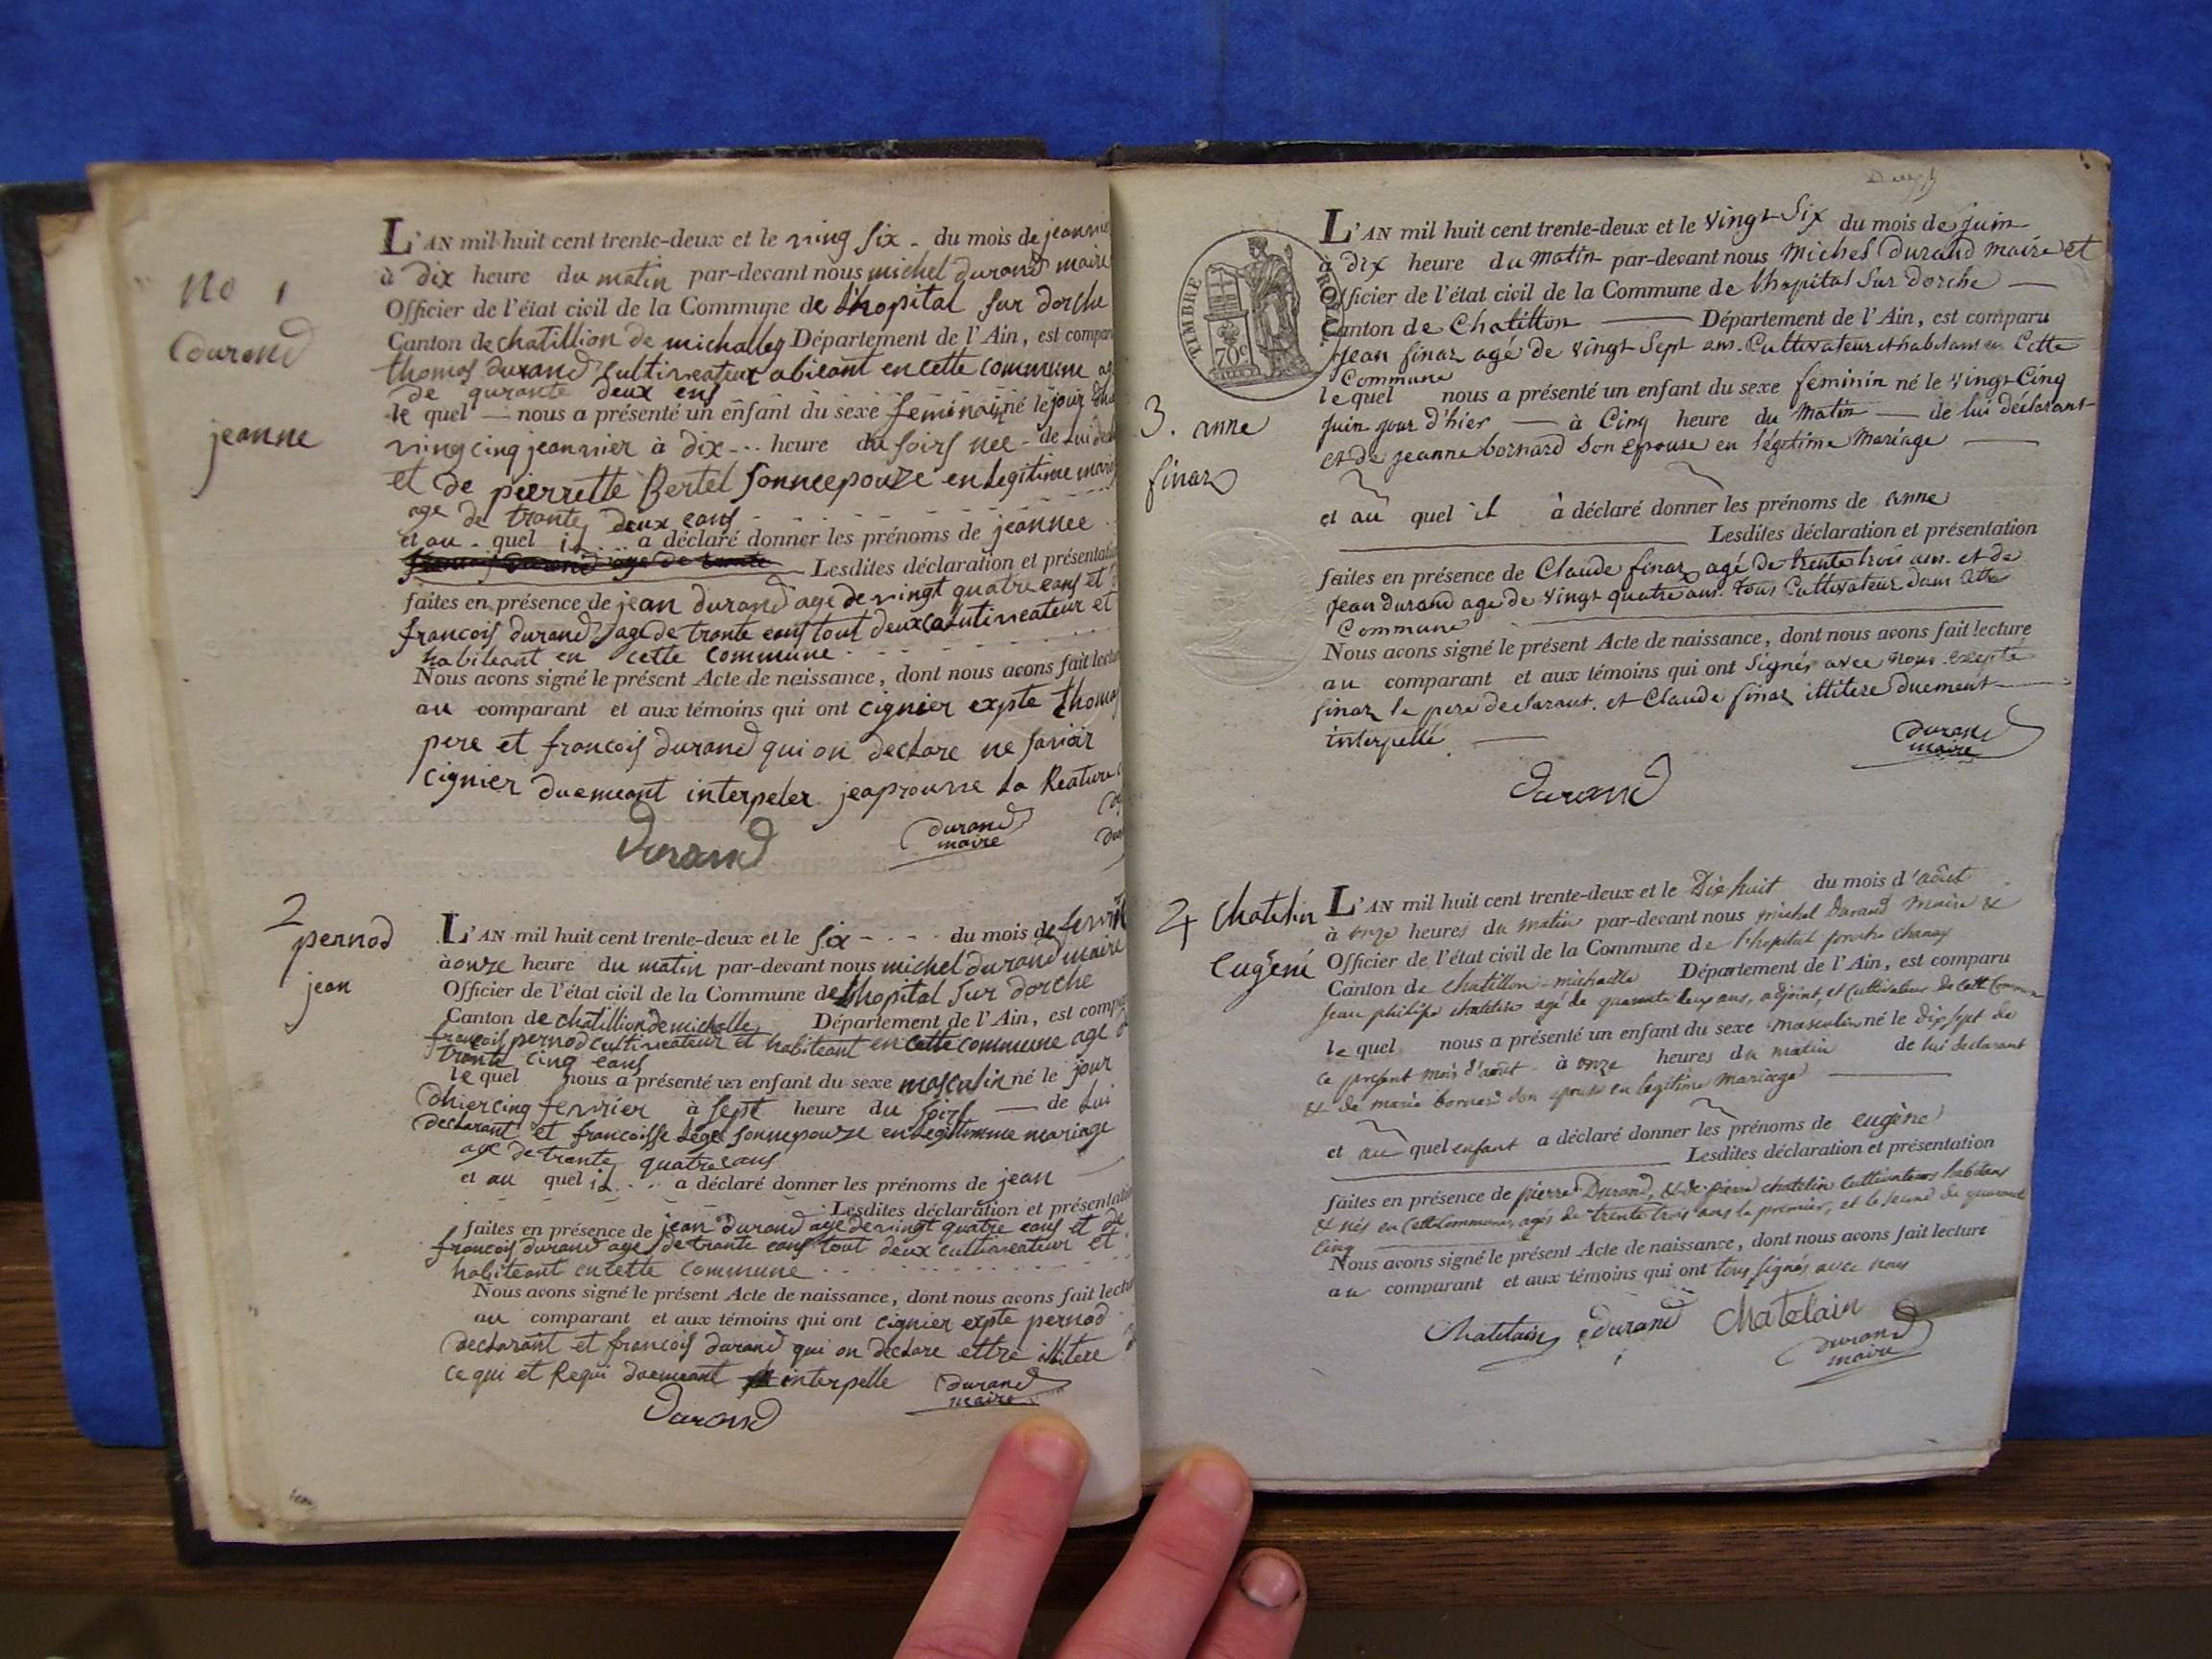 No 1
Durand
jeanne
L'AN mil huit cent trente-deux et le ving six - du mois de jeanvie
à dix heure du matin par-devant nous michel durand maire
Officier de l'état civil de la Commune de Lhopital sur dorche
Canton de chatillion de michalley Département de l'Ain, est compar
thomas durand cultivateur abitant en cette commune ag
de qurante deux ens
le quel — nous a présenté un enfant du sexe feminain né le jour
ving cinq jeanvier à dix - - - heure du soirs nee - de lui
et de pierrette Bertet sonneepouze en legitime mari
age de trante deux eans
et au - quel il . . . a déclaré donner les prénoms de jeannee
Lesdites déclaration et présentati
faites en présence de jean durand age de vingt quatre eans et
francois durand age de trante eans tout deux cultiveateur et
habiteant en cette commune
Nous avons signé le présent Acte de naissance, dont nous avons fait lectu
au comparant et aux témoins qui ont cignier expte thomas
pere et francois durand qui on declare ne savoir
cignier duemeant interpeler jeaprouve la Reature
Durand
durand
maire
2
pernod
jean
L'AN mil huit cent trente-deux et le six - - - - du mois de fevri
à onze heure du matin par-devant nous michel durand maire
Officier de l'état civil de la Commune de Lhopital sur dorche
Canton de chatillion de michalle Département de l'Ain, est comp
francois pernod cultiveateur et habiteant en cette commune age
trante cinq eans
le quel nous a présenté un enfant du sexe masculin né le jour
dhier cinq fevrier à sept heure du soirs — de lui
declarant et francoisse Leger sonnepouze en Legitimme mariage
age de trante quatre eans
et au quel il . . . a déclaré donner les prénoms de jean
Lesdites déclaration et présentatio
faites en présence de jean durand age de vingt quatre eans et de
francois durand age de trante eans tout deux cultiveateur et
habiteant en cette commune
Nous avons signé le présent Acte de naissance, dont nous avons fait lectu
au comparant et aux témoins qui ont cignier expte pernod
declarant et francois durand qui on declare ettre illitere
ce qui et Requi duemeant interpelle
durand
maire
Durand
TIMBRE ROYAL
70c
3. anne
finaz
L'AN mil huit cent trente-deux et le vingt Six du mois de juin
à dix heure du matin par-devant nous Michel Durand Maire et
Officier de l'état civil de la Commune de lhopital Sur dorche —
Canton de Chatillon — Département de l'Ain, est comparu
jean finaz agé de vingt Sept ans. Cultivateur et habitant en Cette
Commune
le quel nous a présenté un enfant du sexe feminin né le vingt Cinq
juin jour d'hier — à Cinq heure du Matin — de lui déclarant
et de jeanne bornard Son Epouse en légitime Mariage —
et au quel il à déclaré donner les prénoms de anne
Lesdites déclaration et présentation
faites en présence de Claude finaz agé de trente trois ans. et de
Jean Durand age de vingt quatre ans. tous Cultivateur dans Cette
Commune
Nous avons signé le présent Acte de naissance, dont nous avons fait lecture
au comparant et aux témoins qui ont Signés avec nous Excepté
finaz le pere declarant. et Claude finaz illitere duement
interpellé —
durand
maire
Durand
4 Chatelin
Eugéne
L'AN mil huit cent trente-deux et le Dix huit du mois d'août
à onze heures du matin par-devant nous michel Durand Maire &
Officier de l'état civil de la Commune de l'hopital
Canton de chatillon-michaille Département de l'Ain, est comparu
jean philipe chatelin agé de quarante deux ans, adjoint, et Cultivateur de Cette Commune
le quel nous a présenté un enfant du sexe masculin né le dix sept de
ce présent mois d'août à onze heures du matin de lui declarant
& de marie bornard son épouse en legitime mariage —
et au quel enfant a déclaré donner les prénoms de eugène
Lesdites déclaration et présentation
faites en présence de pierre Durand, & de pierre chatelin Cultivateurs habitans
& nés en Cette Commune, agés de trente trois ans le premier, et le second de quarante
Cinq
Nous avons signé le présent Acte de naissance, dont nous avons fait lecture
au comparant et aux témoins qui ont tous signés avec nous
Chatelain Durand Chatelain
durand
maire